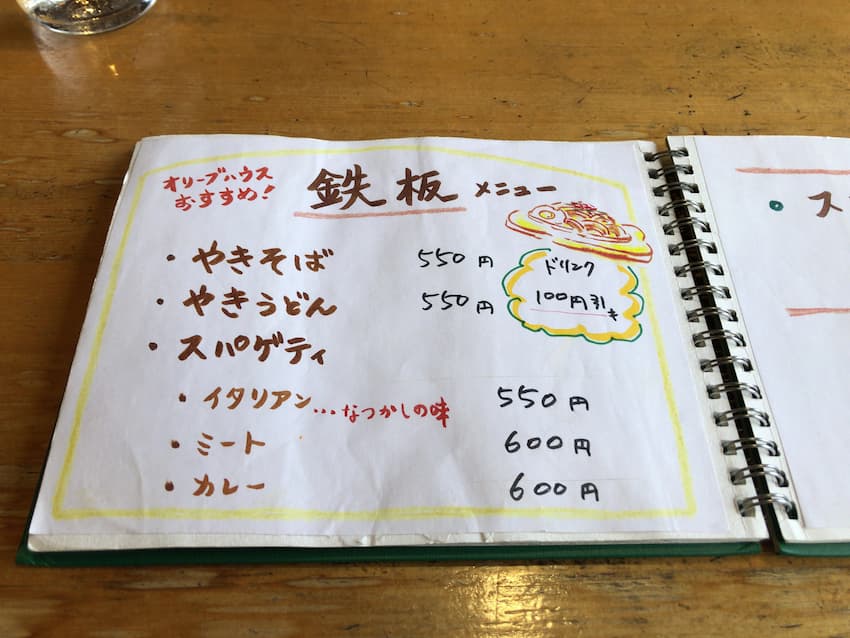 オリーブハウス
おすすめ!
鉄板メニュー
・やきそば 550円
・やきうどん 550円
ドリンク
100円引き
・スパゲティ
・イタリアン…なつかしの味 550円
・ミート 600円
・カレー 600円
・ス